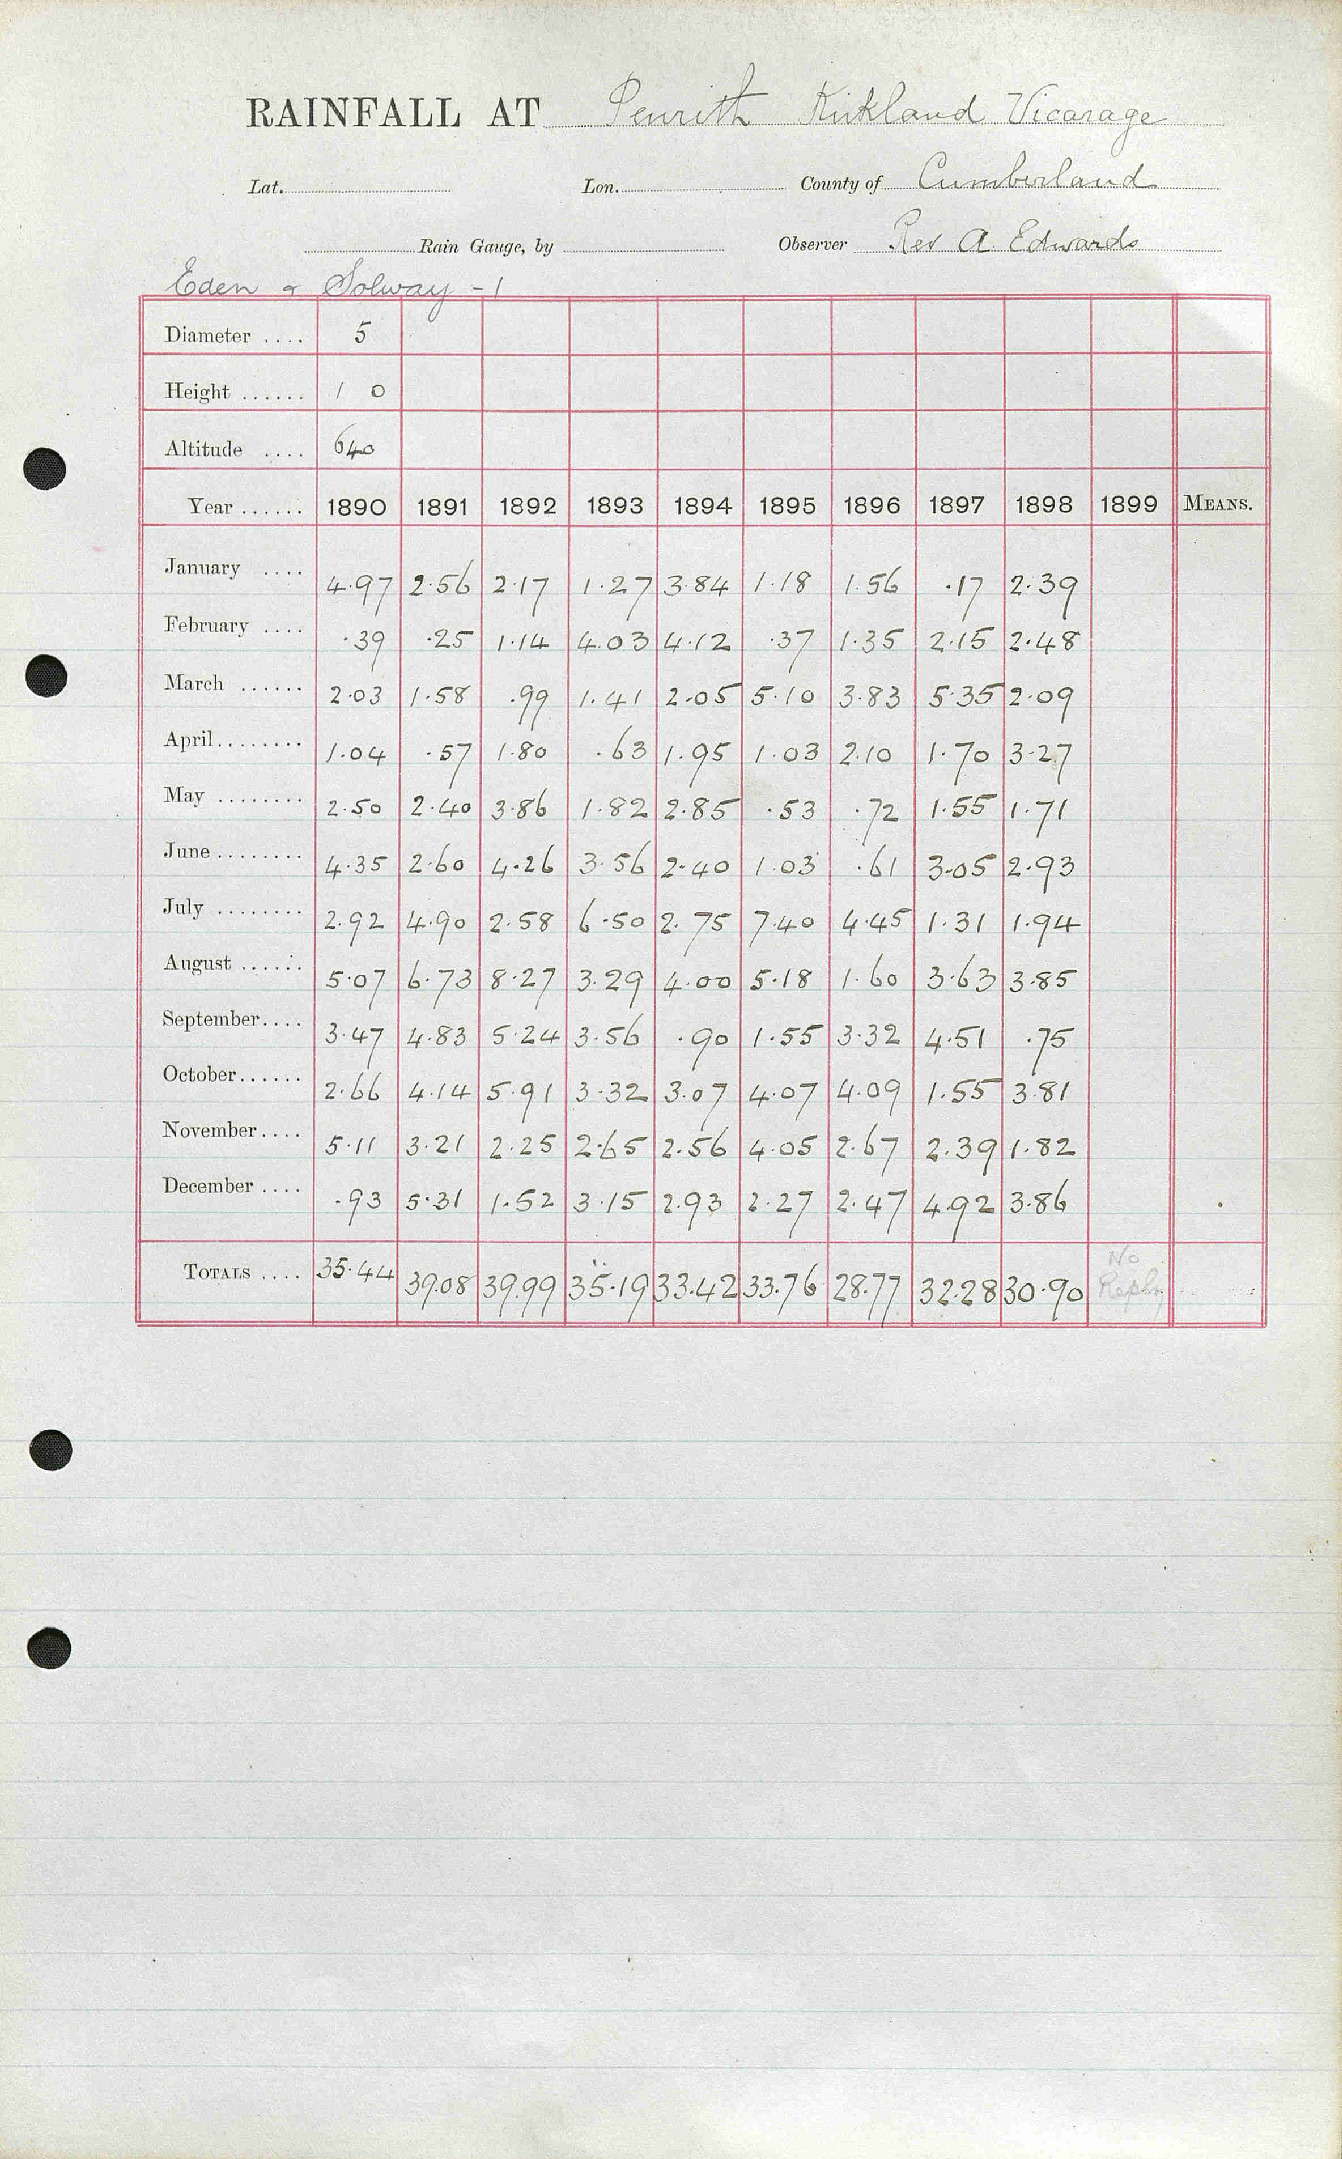 RAINFALL AT Penrith Kirkland Vicarage
Lat. Lon. County of Cumberland
Rain Gauge, by Observer Rev A Edwards
Eden & Solway - 1
Diameter .... 5
Height ...... 1 0
Altitude .... 640
Year ...... 1890 1891 1892 1893 1894 1895 1896 1897 1898 1899 MEANS.
January .... 4.97 2.56 2.17 1.27 3.84 1.18 1.56 .17 2.39
February .... .39 .25 1.14 4.03 4.12 .37 1.35 2.15 2.48
March ...... 2.03 1.58 .99 1.41 2.05 5.10 3.83 5.35 2.09
April ........ 1.04 .57 1.80 .63 1.95 1.03 2.10 1.70 3.27
May ........ 2.50 2.40 3.86 1.82 2.85 .53 .72 1.55 1.71
June ........ 4.35 2.60 4.26 3.56 2.40 1.03 .61 3.05 2.93
July ........ 2.92 4.90 2.58 6.50 2.75 7.40 4.45 1.31 1.94
August ...... 5.07 6.73 8.27 3.29 4.00 5.18 1.60 3.63 3.85
September .... 3.47 4.83 5.24 3.56 .90 1.55 3.32 4.51 .75
October ...... 2.66 4.14 5.91 3.32 3.07 4.07 4.09 1.55 3.81
November .... 5.11 3.21 2.25 2.65 2.56 4.05 2.67 2.39 1.82
December .... .93 5.31 1.52 3.15 2.93 2.27 2.47 4.92 3.86
TOTALS .... 35.44 39.08 39.99 35.19 33.42 33.76 28.77 32.28 30.90 No Reply